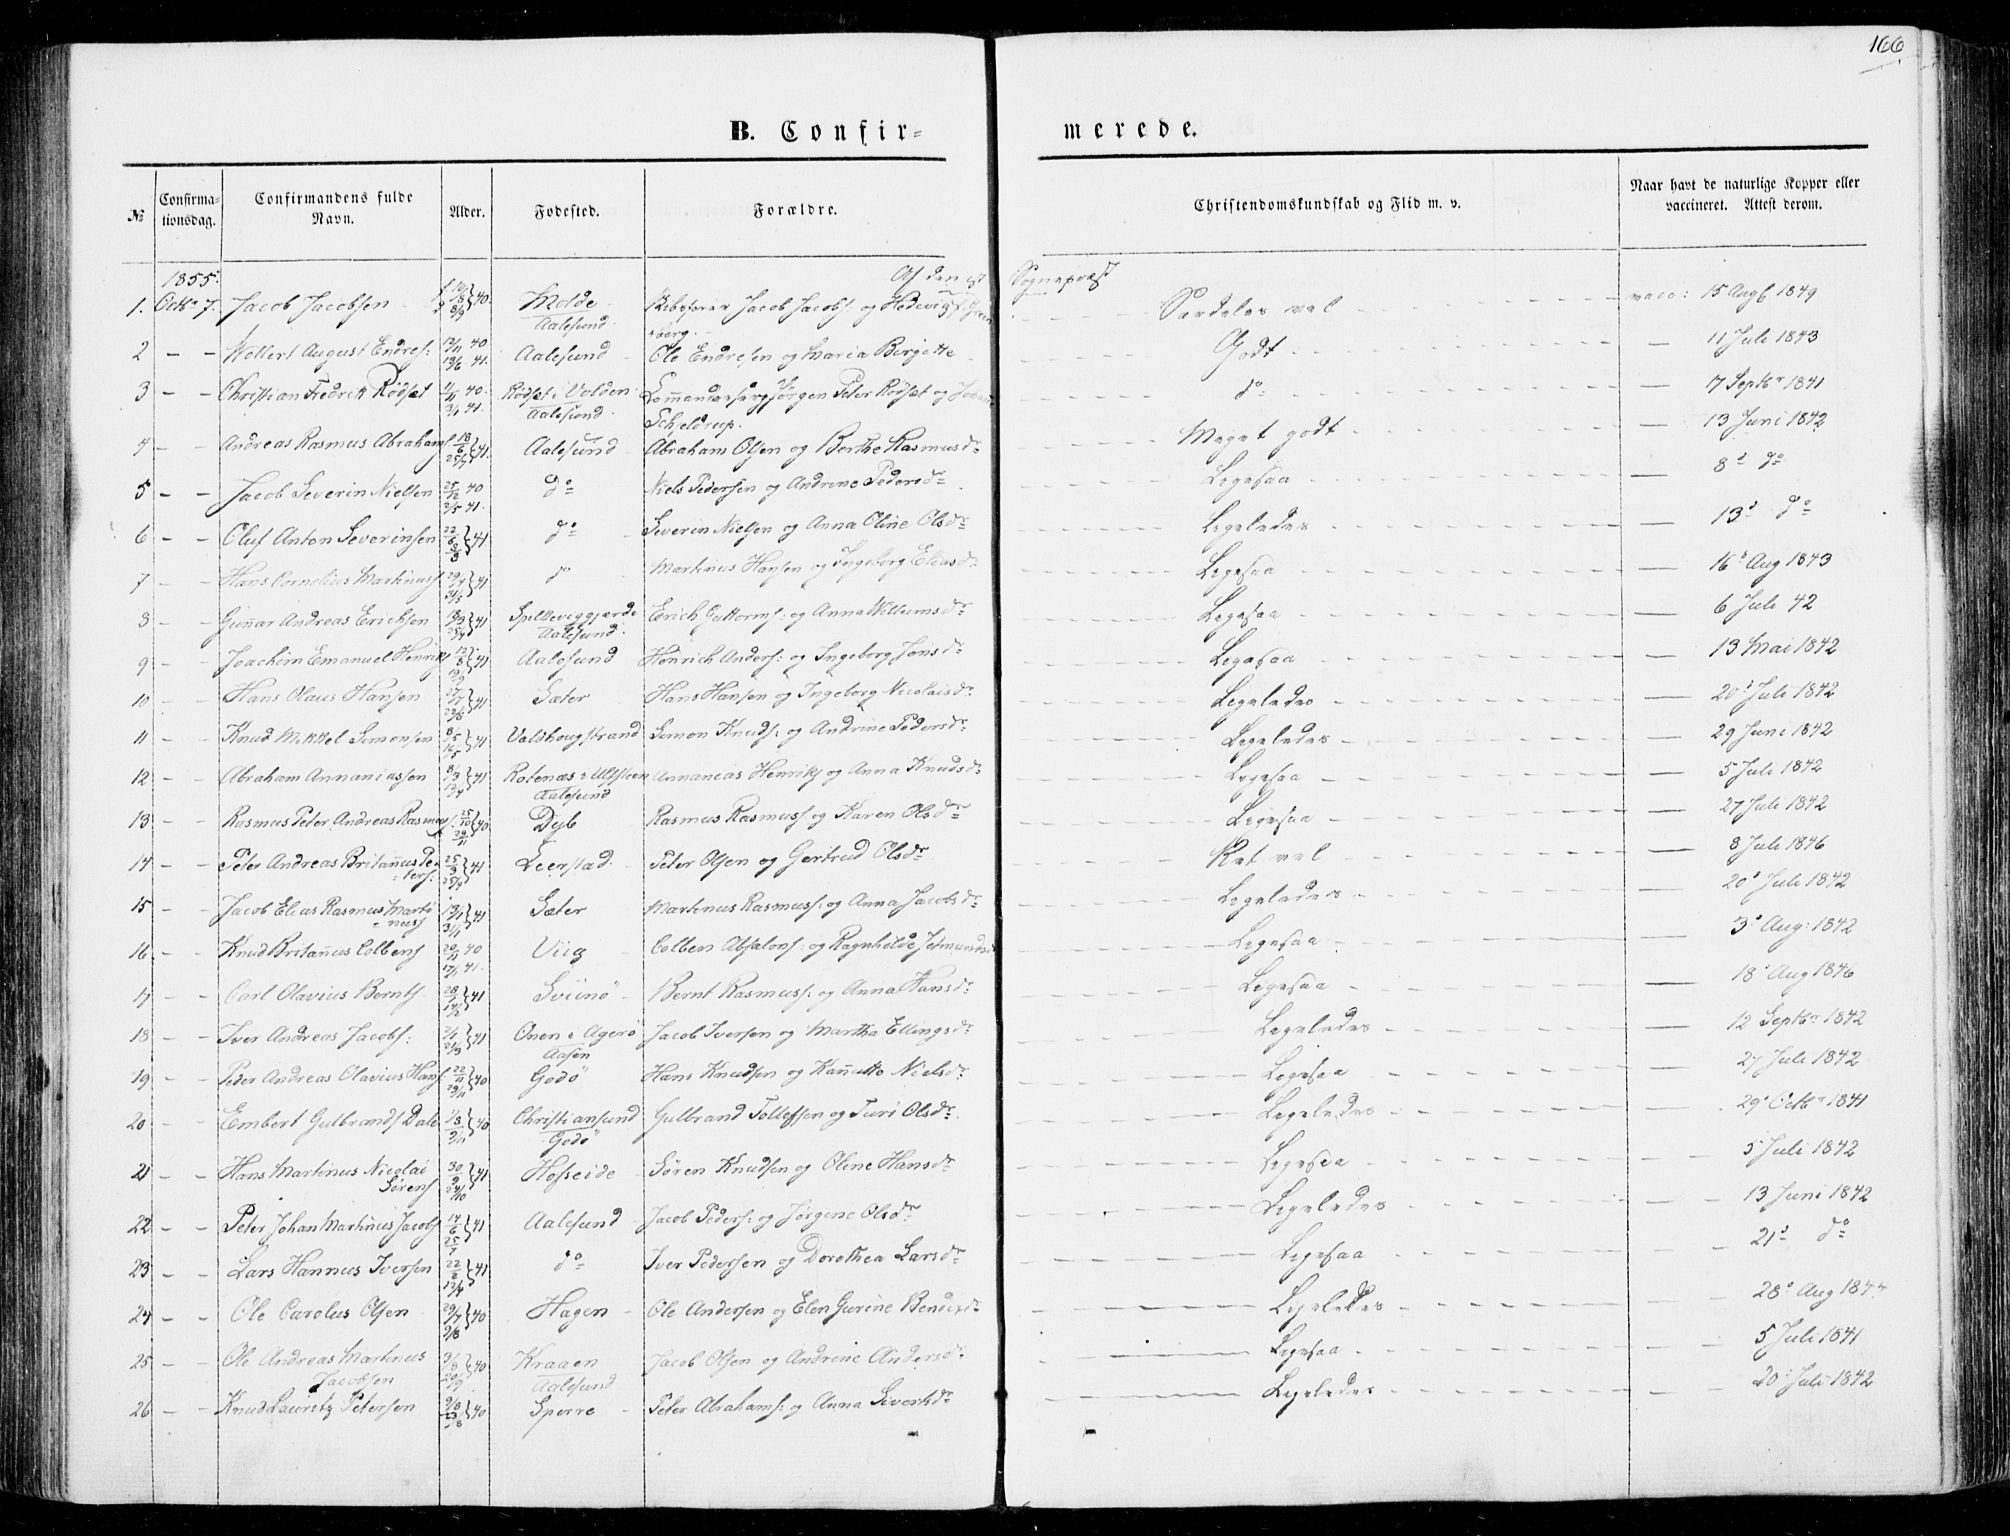 166
B. Confir=
merede.
№ Confirma-tionsdag. Confirmandens fulde Navn. Alder. Fødested. Forældre. Christendomskundskab og Flid m. v. Naar havt de naturlige Kopper eller vaccineret. Attest derom.
1855: Af den Sognepræst
1. Octbr 7. Jacob Jacobsen 40. Molde Aalesund Skibsfører Jacob Jacobs: og Hedevig berg. Særdeles vel vacc: 15 Aug 1849
2 - - Wollert August Endres: 12/11 40 13/6 41. Aalesund Ole Endresen og Maria Birgitte Godt — 11 Juli 1843
3 - - Christian Fredrik Rødset 1/11 40. 3/1 41. Rødset i Volden Aalesund Jørgen Peter Rødset og Schjeldrup. do — 17 Septbr 1841
4 - - Andreas Rasmus Abrahams 18/6 25/7 41. Aalesund Abraham Olsen og Berthe Rasmusdr Meget godt — 13 Juni 1842
5 - - Jacob Severin Nielsen 25/12 40 2/5 41. do Niels Pedersen og Andrine Pedersdr Ligesaa — 8d do
6 - - Oluf Anton Severinsen 22/6 41 do Severin Nielsen og Anna Oline Olsdr Ligeledes — 13d do
7 - - Hans Cornelius Martinuss 41 do Martinus Hansen og Ingeborg Eliasdr Ligesaa — 16d Aug 1843
8 - - Gunnar Andreas Ericksen 18/3 25/4 41 Spilkeviggjerde Aalesund. Erich Guttorms: og Anna Willumsdr Ligesaa — 6 Juli 42
9 - - Joachim Emanuel Henriks 12/8 41 Aalesund Henrich Anders: og Ingeborg Jensdr Ligesaa — 13 Mai 1842
10 - - Hans Olaus Hansen 27/7 29/8 41 Sæter Hans Hansen og Ingeborg Nicolaisdr Ligeledes — 20d Juli 1842
11 - - Knud Mikkel Simonsen 8/5 16/5 41 Valshougstrand Simon Knuds: og Andrine Pedersdr Ligeledes — 29 Juni 1842
12 - - Abraham Annaniassen 8/3 13/4 41 Rotenæs i Ulfsteen Aalesund Annanias Henriks og Anna Knudsdr Ligesaa — 5 Juli 1842
13 - - Rasmus Peter Andreas Rasmuss. 25/10 29/11 40 Dyb Rasmus Rasmuss og Karen Olsdr Ligesaa — 27 Juli 1842
14 - - Peter Andreas Britannus Pe-ters: 25/3 25/4 41 Leerstad Peter Olsen og Gertrud Olsdr Ret vel — 8 Juli 1846
15 - - Jacob Elias Rasmus Marti-nuss 13/1 31/1 41 Sæter Martinus Rasmuss: og Anna Jacobsdr Ligeledes — 20d Juli 1842
16 - - Knud Britannus Colbens 20/11 40 17/1 41. Viig Colben Absalons: og Ragnhilde Ligesaa — 3d Aug: 1842
17 - - Carl Olavius Bernts 28/1 14/2 41 Sviinø Bernt Rasmuss: og Anna Hansdr Ligesaa — 18d Aug 1846
18 - - Iver Andreas Jacobs: 2/1 21/3 41 Onen i Agerø Aasen Jacob Iversen og Martha Ellingsdr Ligeledes — 12 Septbr 1842
19 - - Peder Andreas Olavius Hans 22/11 29/11 40 Godø Hans Knudsen og Kannutte Nielsdr Ligesaa — 27 Juli 1842
20 - - Embert Gulbrands Dale 1/8 9/11 40 Christiansund Godø Gulbrand Tollefsen og Turi Olsdr. Ligeledes — 29d Octbr 1841
21 - - Hans Martinus Nicolai Sørens 30/9 24/10 41 Hofseide Søren Knudsen og Oline Hansdr Ligesaa — 5 Juli 1842
22 - - Peter Johan Martinus Jacobs 14/6 25/7 41 Aalesund Jacob Peders: og Jørgine Olsdr Ligeledes — 13 Juni 1842
23 - - Lars Hannus Iversen 22/2 12/4 41 do Iver Pedersen og Dorothea Larsdr Ligesaa — 21d do
24 - - Ole Carolus Olsen 29/7 9/8 40 Hagen Ole Andersen og Elen Gurine Bendixdr Ligeledes — 28d Aug 1844
25 - - Ole Andreas Martinus Jacobsen 3/8 20/9 40 Kraaen Aalesund Jacob Olsen og Andrine Andersdr Ligesaa — 5 Juli 1841
26 - - Knud Lauritz Petersen 9/8 23/8 40 Sperre Peter Abrahams: og Anna Sivertsdr Ligeledes — 20 Juli 1842